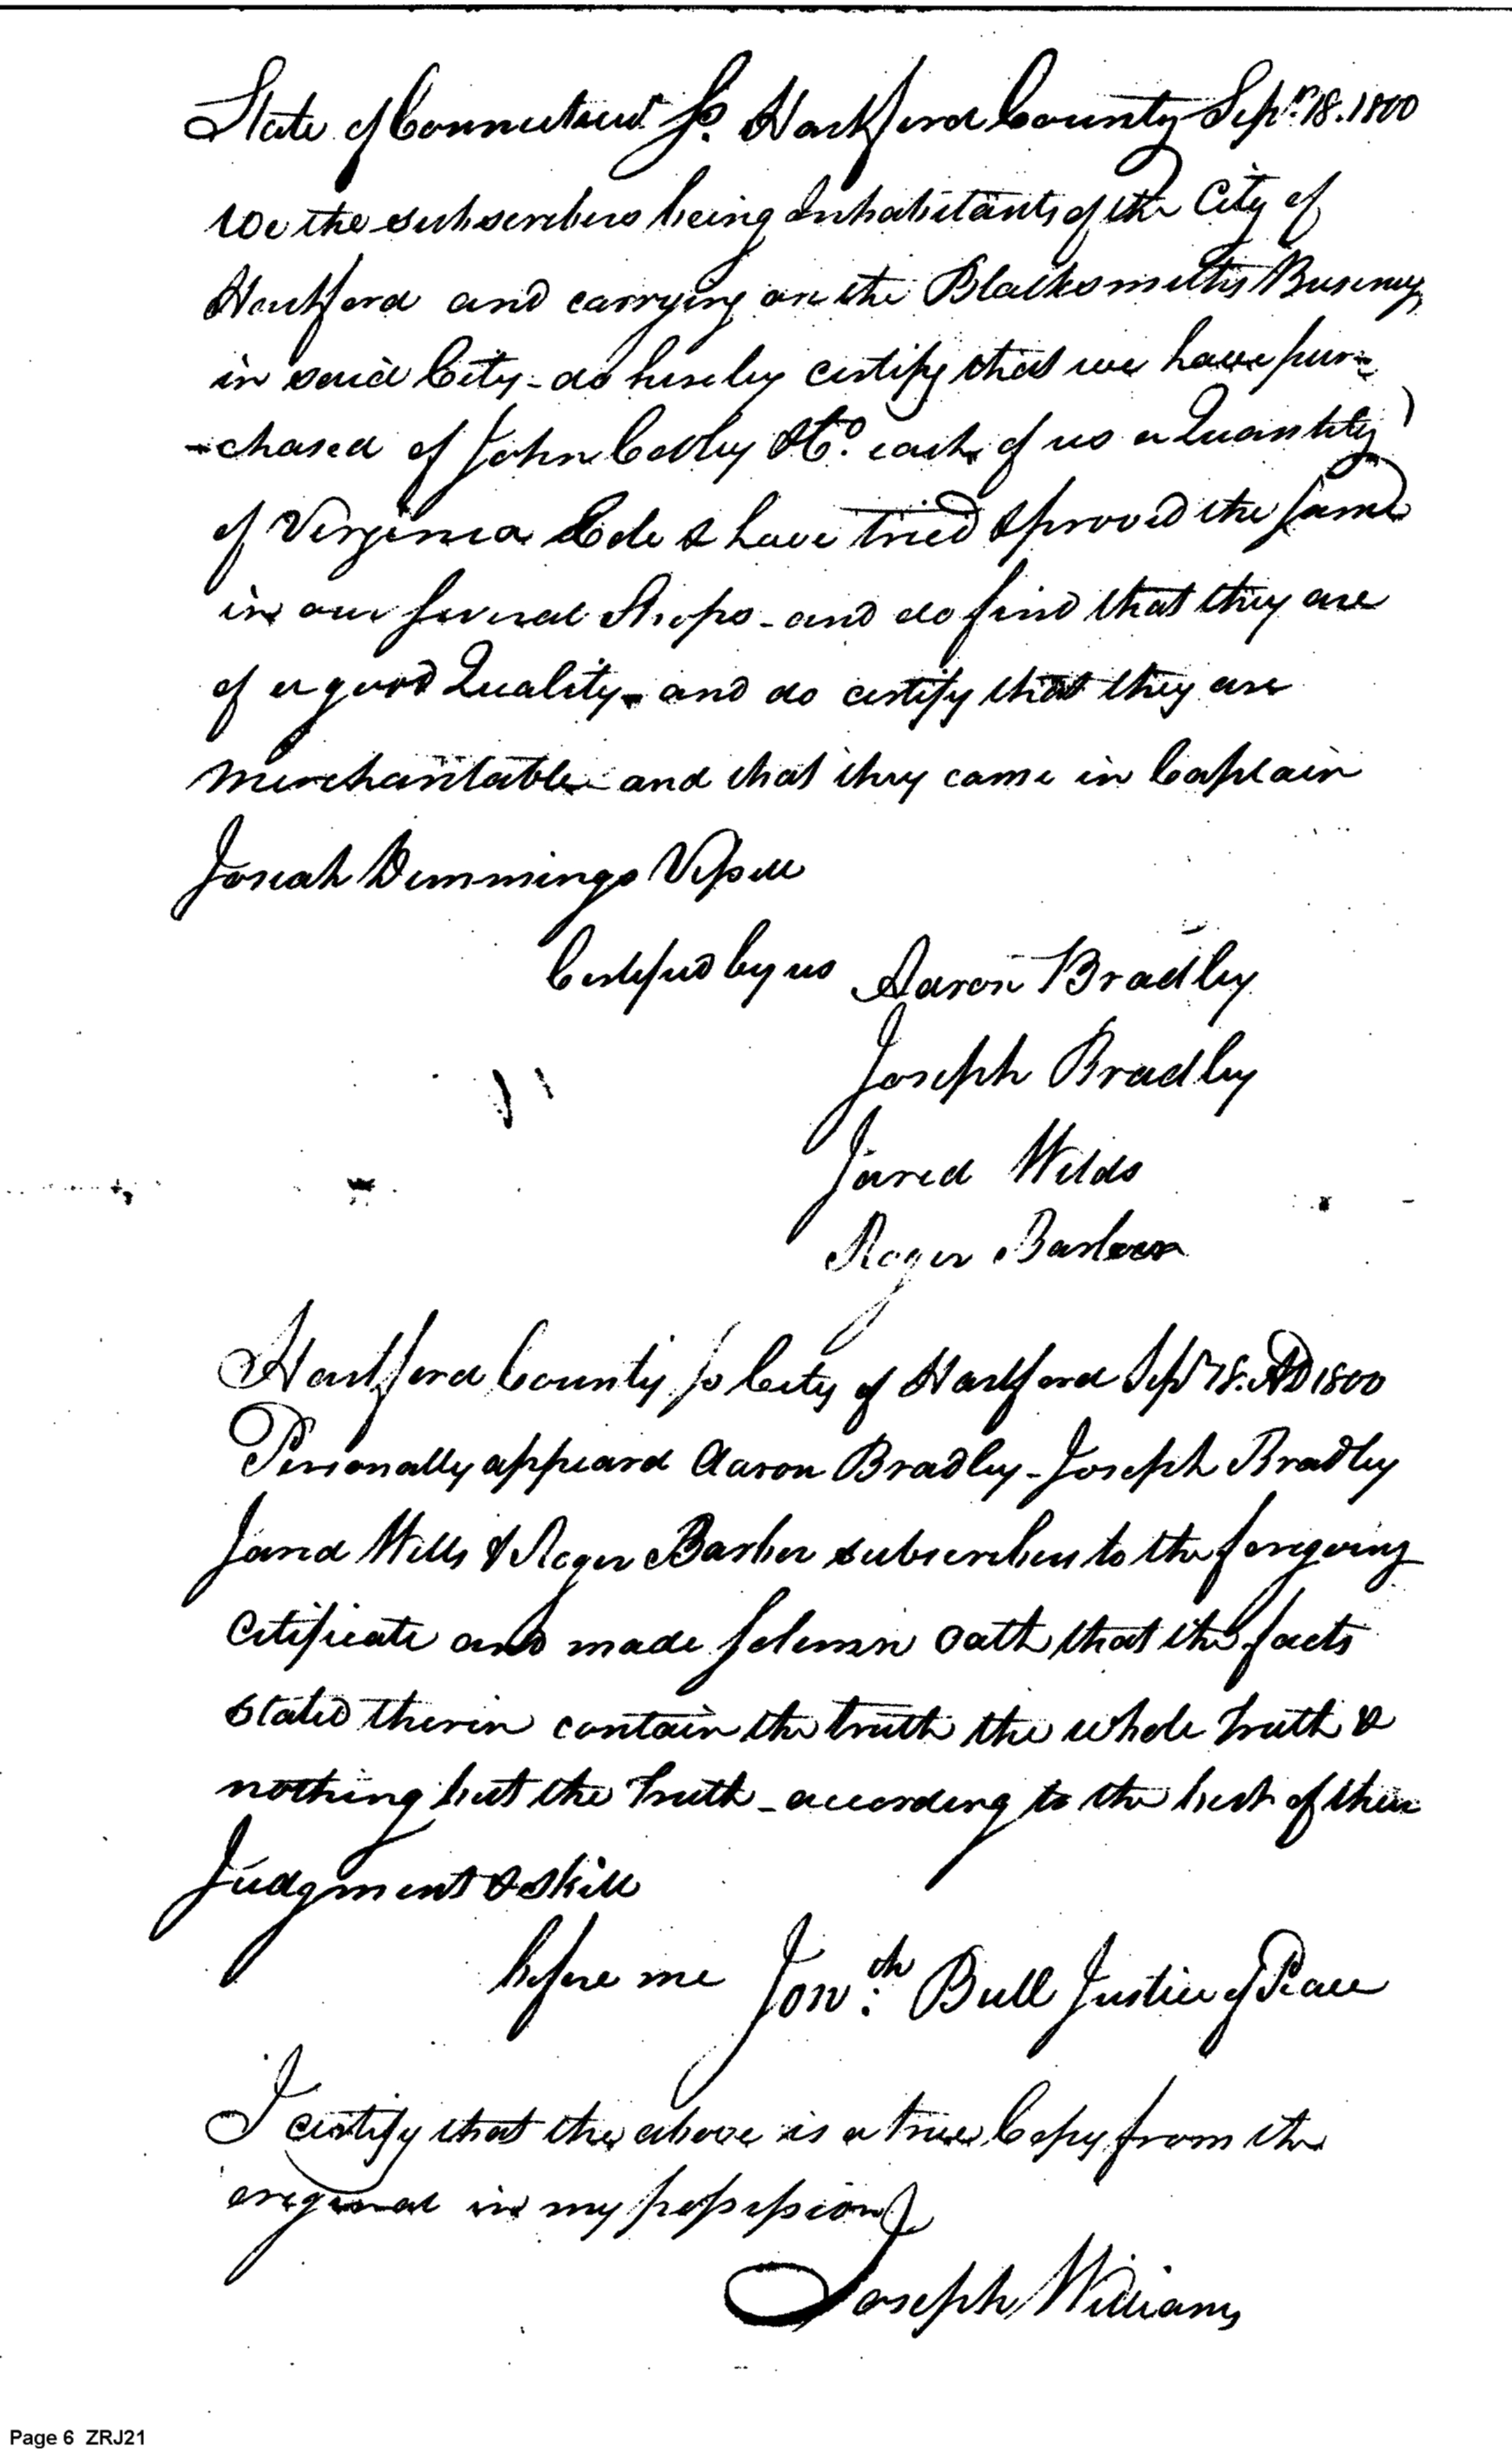 State of Connecticut Ss. Hartford County Sepr. 18. 1800
We the subscribers being Inhabitants of the City of
Hartford and carrying on the Blacksmiths Business
in said City - do hereby certify that we have pur=
-chased of John & Co. each of us a Quantity
of Virginia Cole & have tried & proved the same
in our several Shops - and do find that they are
of a good Quality - and do certify that they are
Merchantable - and that they came in Captain
Josiah Demmings Vessell
Certified by us Aaron Bradley
Joseph Bradley
Jared Wilds
Roger Barber
Hartford County Ss City of Hartford Sepr 18. AD 1800
Personally appeard Aaron Bradley - Joseph Bradley
Jared Wills & Roger Barber subscribers to the foregoing
Cetificate and made Solemn Oath that the facts
stated therin contain the truth the whole truth &
nothing but the truth - according to the best of their
Judgment & skill
before me Jonth: Bull Justice of Peace
I certify that the above is a true Copy from the
original in my possession
Joseph Williams
Page 6 ZRJ21